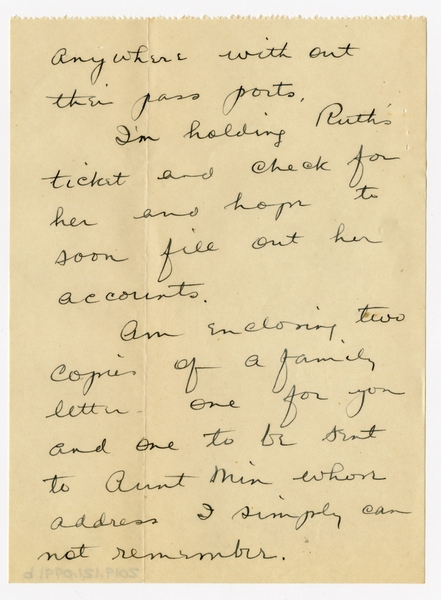 anywhere with out
their pass ports.
I'm holding Ruth's
ticket and check for
her and hope to
soon fill out her
accounts.
Am enclosing two
copies of a family
letter - one for you
and one to be sent
to Aunt Min whose
address I simply can
not remember.